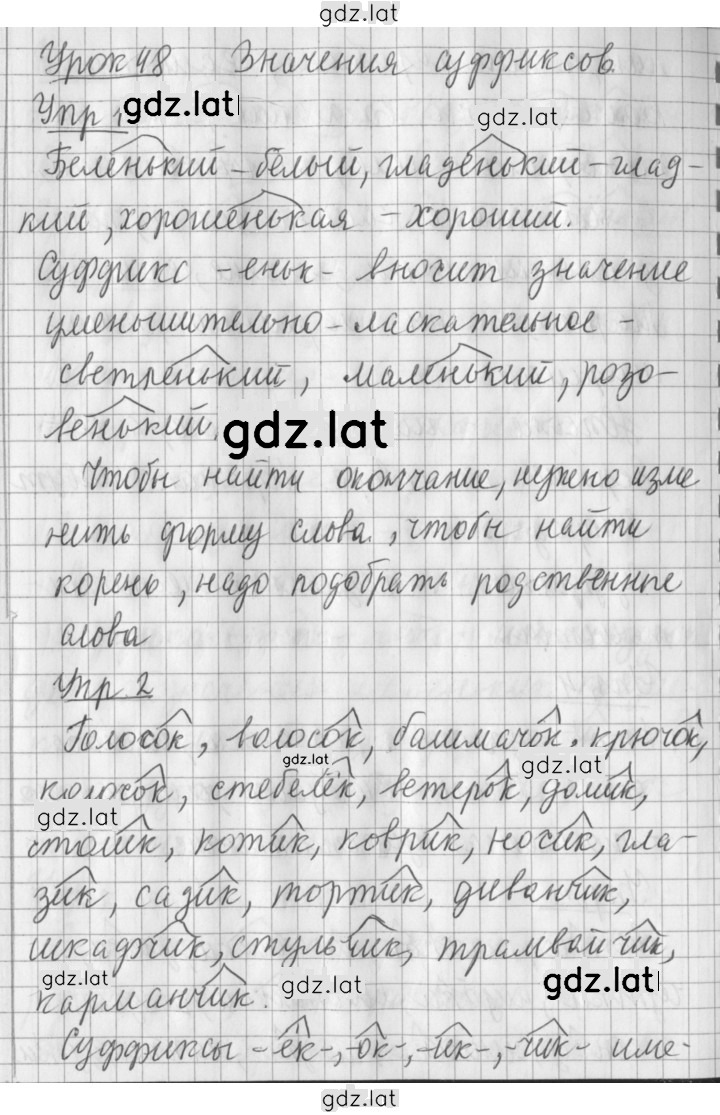 gdz.lat
Урок 48 Значения суффиксов.
Упр 1 gdz.lat gdz.lat
Беленький - белый, гладенький - глад-
кий, хорошенькая - хороший.
Суффикс - еньк - вносит значение
уменьшительно - ласкательное -
светленький, маленький, розо-
венький. gdz.lat
Чтобы найти окончание, нужно изме
нить форму слова, чтобы найти
корень, надо подобрать родственные
слова
Упр. 2
Голосок, волосок, башмачок, крючок,
gdz.lat gdz.lat
стебелёк, ветерок, домик,
gdz.lat
столик, котик, коврик, носик, гла-
зик, садик, тортик, диванчик,
шкафчик, стульчик, трамвайчик,
gdz.lat gdz.lat gdz.lat
карманчик.
Суффиксы - ёк -, - ок -, - ик -, - чик - име-
gdz.lat